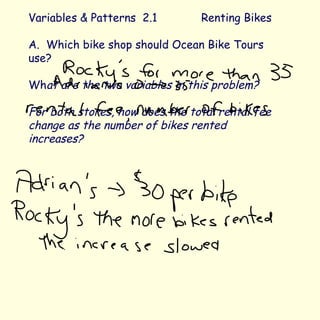 Variables & Patterns 2.1 Renting Bikes
A. Which bike shop should Ocean Bike Tours
use?
Rocky's for more than 35
What are the two variables in this problem?
rental fee, number of bikes
For both stores, how does the total rental fee
change as the number of bikes rented
increases?
Adrian's → $30 per bike
Rocky's the more bikes rented
the increase slowed